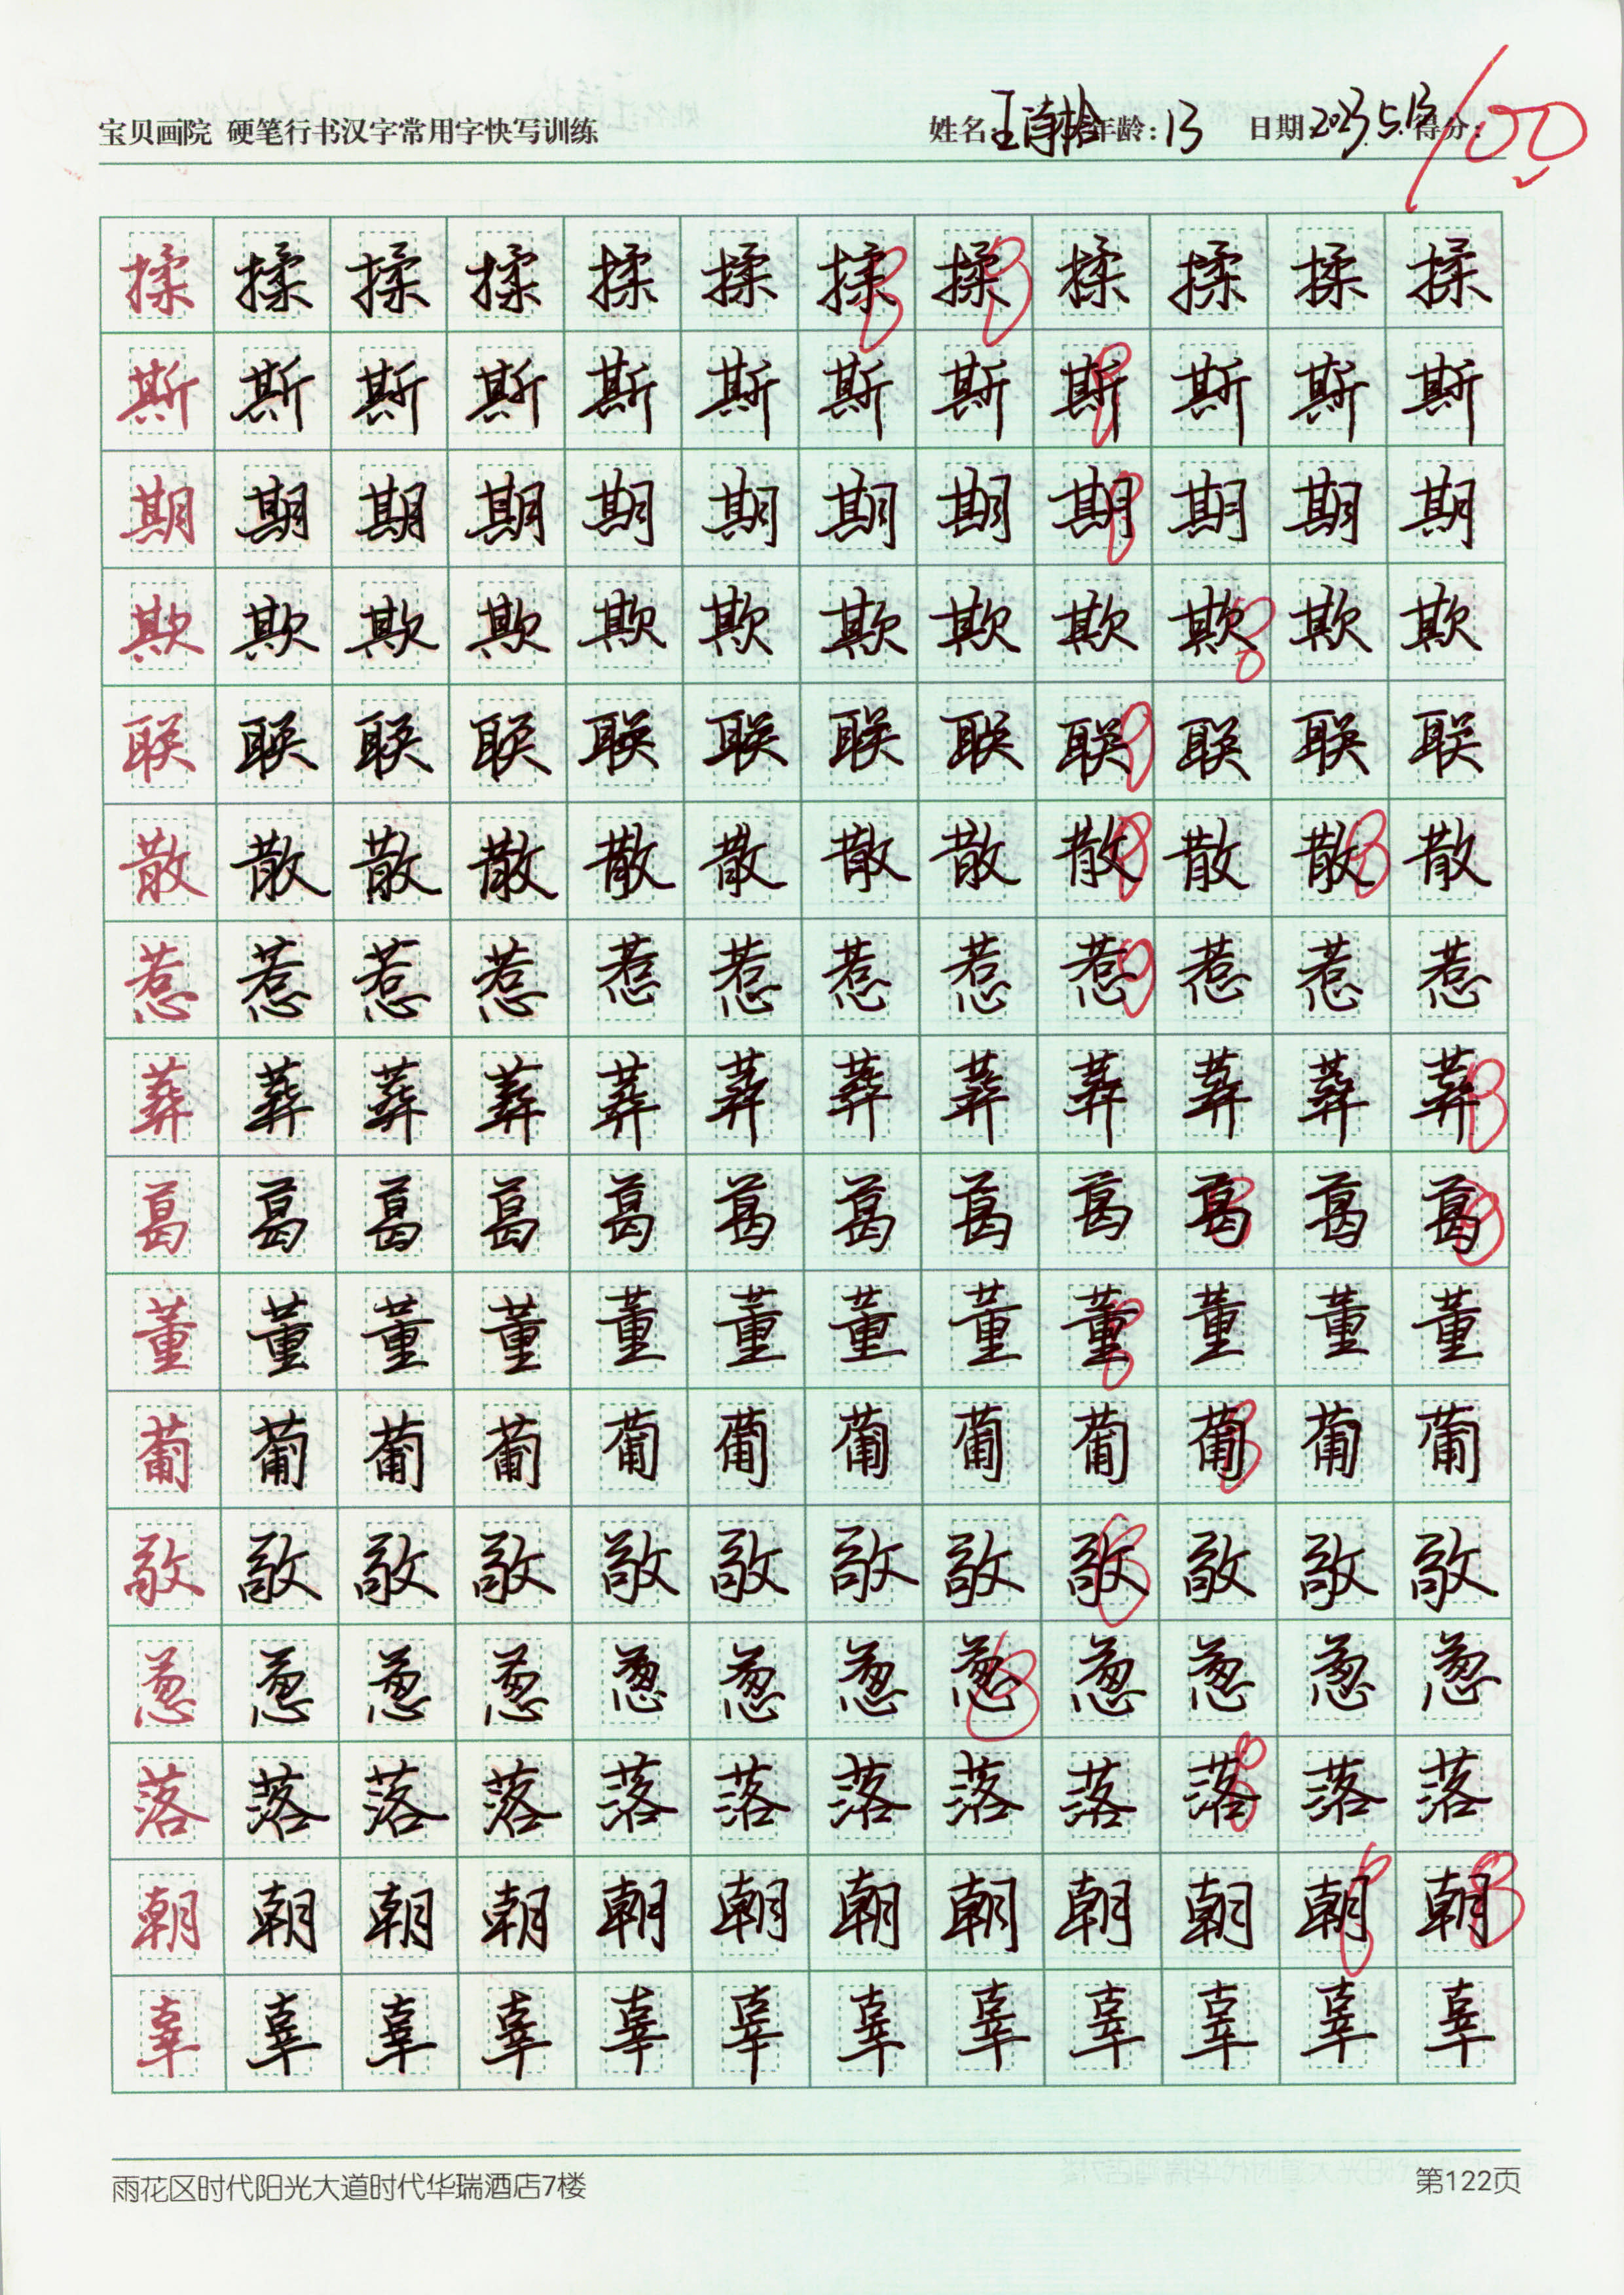 宝贝画院 硬笔行书汉字常用字快写训练 姓名 年龄：13 日期 2023.5.13 得分：100
揉 揉 揉 揉 揉 揉 揉 揉 揉 揉 揉 揉
斯 斯 斯 斯 斯 斯 斯 斯 斯 斯 斯 斯
期 期 期 期 期 期 期 期 期 期 期 期
欺 欺 欺 欺 欺 欺 欺 欺 欺 欺 欺 欺
联 联 联 联 联 联 联 联 联 联 联 联
散 散 散 散 散 散 散 散 散 散 散 散
惹 惹 惹 惹 惹 惹 惹 惹 惹 惹 惹 惹
葬 葬 葬 葬 葬 葬 葬 葬 葬 葬 葬 葬
葛 葛 葛 葛 葛 葛 葛 葛 葛 葛 葛 葛
董 董 董 董 董 董 董 董 董 董 董 董
葡 葡 葡 葡 葡 葡 葡 葡 葡 葡 葡 葡
敬 敬 敬 敬 敬 敬 敬 敬 敬 敬 敬 敬
葱 葱 葱 葱 葱 葱 葱 葱 葱 葱 葱 葱
落 落 落 落 落 落 落 落 落 落 落 落
朝 朝 朝 朝 朝 朝 朝 朝 朝 朝 朝 朝
辜 辜 辜 辜 辜 辜 辜 辜 辜 辜 辜 辜
雨花区时代阳光大道时代华瑞酒店7楼 第122页